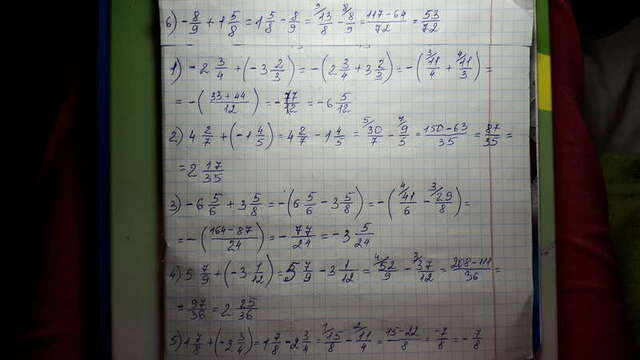 6) -8/9 + 1 5/8 = 1 5/8 - 8/9 = ⁹13/8 - ⁸8/9 = (117-64)/72 = 53/72
1) -2 3/4 + (-3 2/3) = -(2 3/4 + 3 2/3) = -(³11/4 + ⁴11/3) =
= -((33+44)/12) = -77/12 = -6 5/12
2) 4 2/7 + (-1 4/5) = 4 2/7 - 1 4/5 = ⁵30/7 - ⁷9/5 = (150-63)/35 = 87/35 =
= 2 17/35
3) -6 5/6 + 3 5/8 = -(6 5/6 - 3 5/8) = -(⁴41/6 - ³29/8) =
= -((164-87)/24) = -77/24 = -3 5/24
4) 5 7/9 + (-3 1/12) = 5 7/9 - 3 1/12 = ⁴52/9 - ³37/12 = (208-111)/36 =
= 97/36 = 2 25/36
5) 1 7/8 + (-2 3/4) = 1 7/8 - 2 3/4 = 15/8 - ²11/4 = (15-22)/8 = -7/8 = -7/8